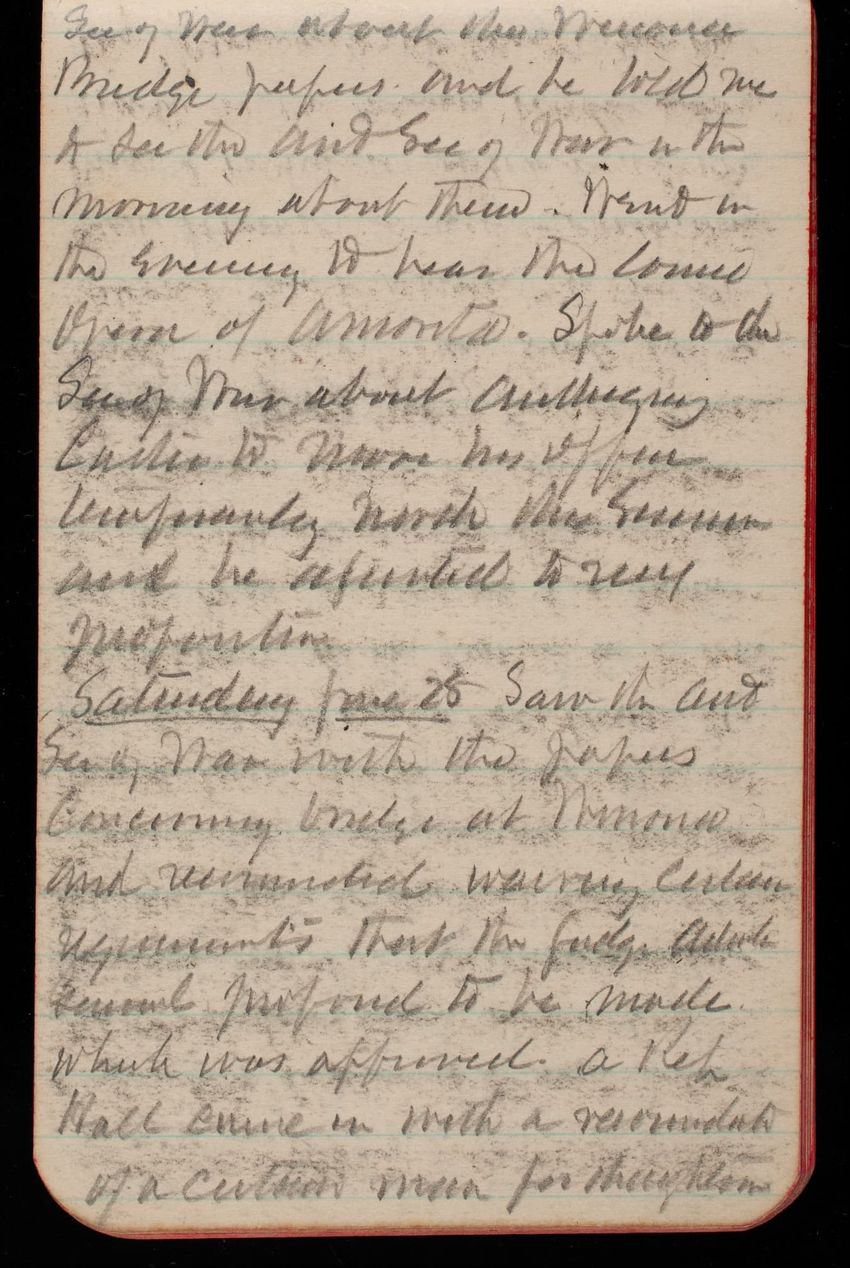 Sec of War about the Winona
Bridge papers and he told me
to see the Asst Sec of War in the
morning about them. Went in
the evening to hear the Comic
Opera of Amorita. Spoke to the
Sec of War about authorizing
to move his office
temporarily north this Summer
and he assented to my
proposition
Saturday June 25 Saw the Asst
Sec of War with the papers
Concerning bridge at Winona
and recommended waiving certain
requirements that the Judge Advocate
General proposed to be made
which was approved. A Rep
Hall came in with a
of a certain man for